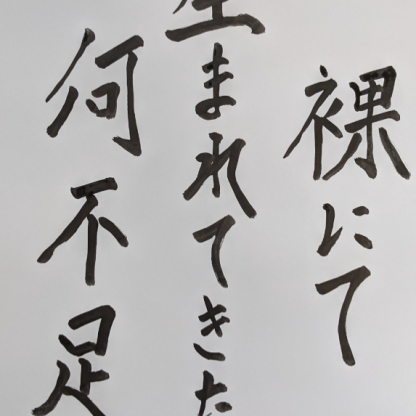 裸にて
生まれてきた
何不足